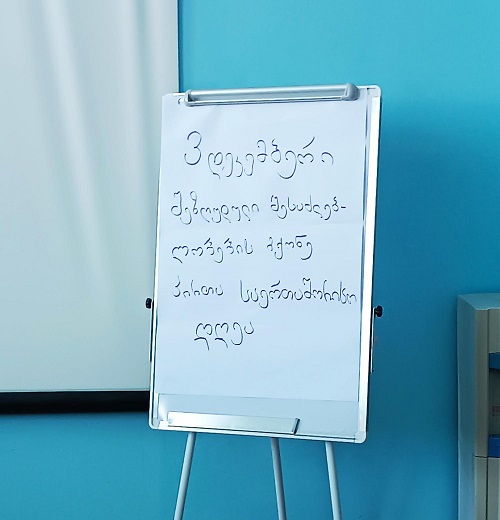 3 დეკემბერი
შეზღუდული შესაძლებ-
ლობების მქონე
პირთა საერთაშორისო
დღეა